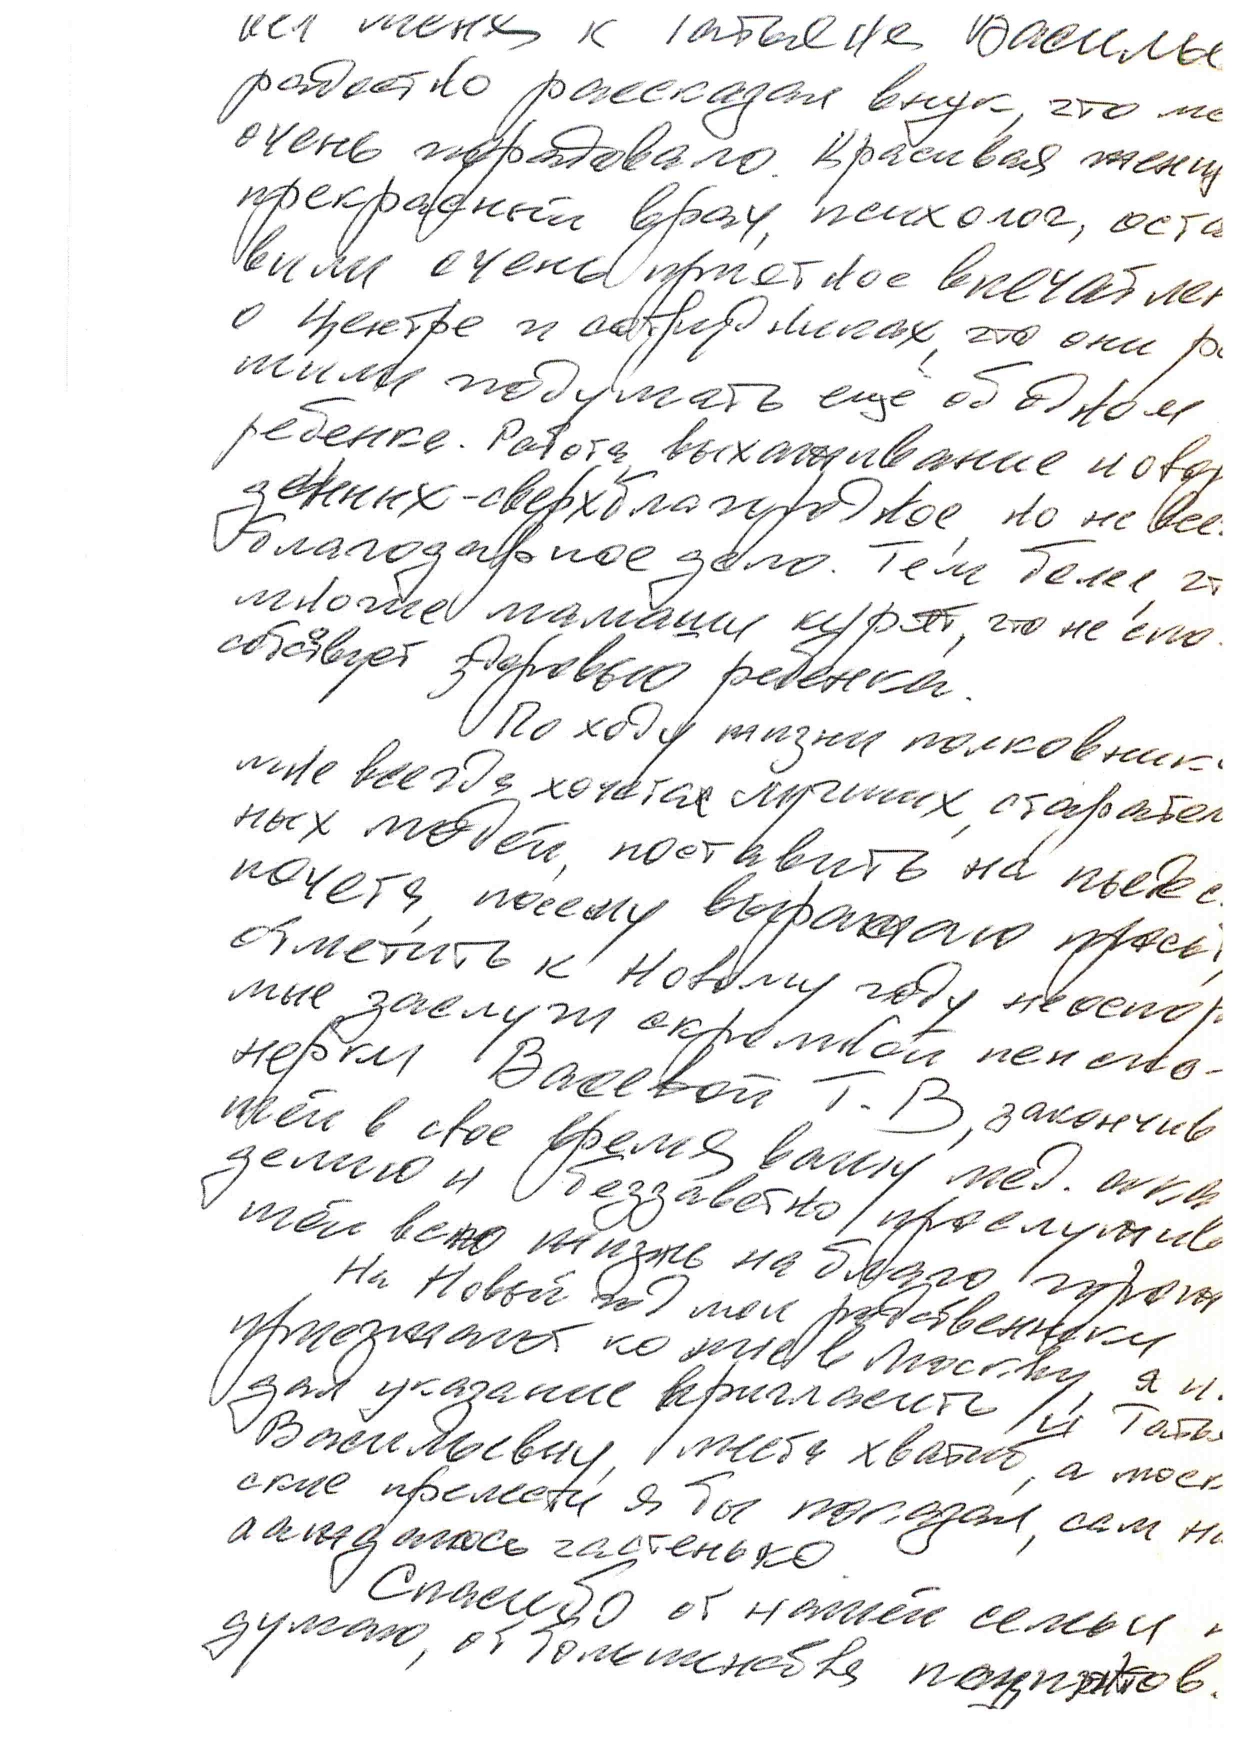 меня к Татьяне Василье
радостно рассказал внук, что ме
очень порадовало. Красивая женщ
прекрасный врач, психолог, оста
вили очень приятное впечатлен
о Центре и сотрудниках, что они ре
шили подумать ещё об одном
ребенке. Работа, выхаживание новор
денных - сверхблагородное, но не все
благодарное дело. Тем более, чт
многие мамаши курят, что не спо
собствует здоровью ребенка.
По ходу жизни полковник
мне всегда хочется лучших, старател
ных людей, поставить на пьеде
почета, посему выражаю прось
отметить к Новому году неоспор
мые заслуги скромной пенсио-
нерки Т. В, закончив
шей в свое время вашу мед. ака
демию и беззаветно прослужив
шей всю жизнь на благо горож
На Новый год мои родственники
приезжают ко мне в Москву, я и
дал указание пригласить и Татья
Васильевну, места хватит, а моск
ские прелести я бы показал, сам на
частенько
Спасибо от нашей семьи и
думаю, от большинства пациентов.